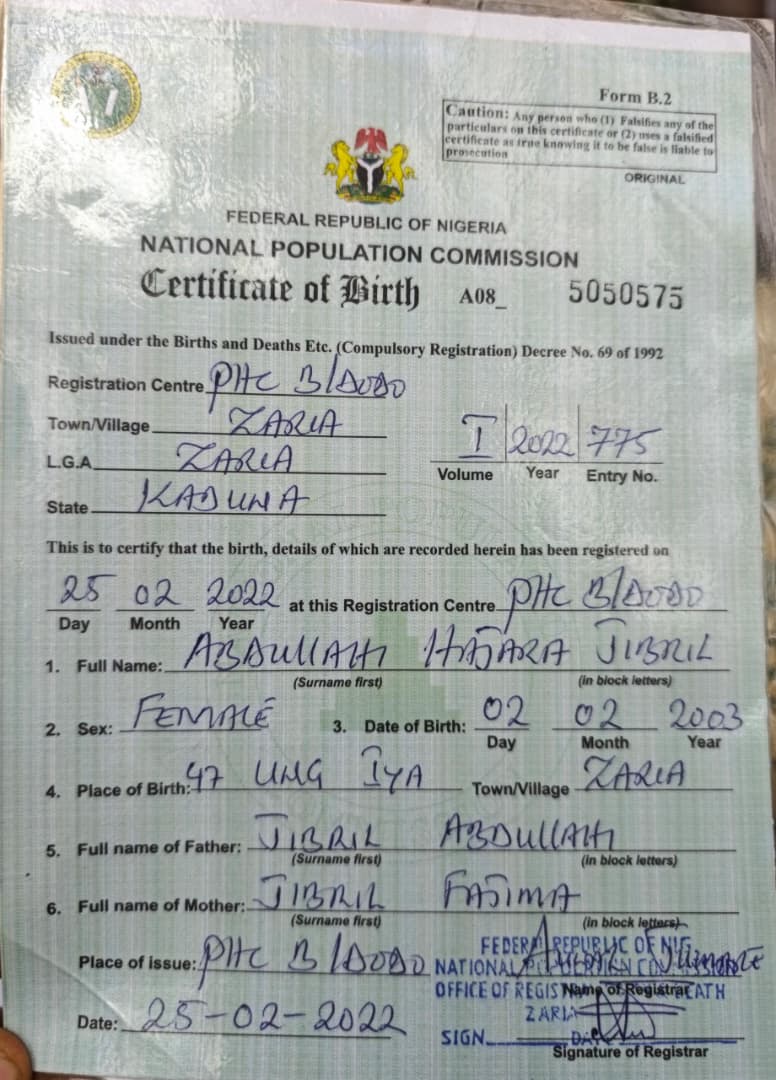 Form B.2
Caution: Any person who (1) Falsifies any of the
particulars on this certificate or (2) uses a falsified
certificate as true knowing it to be false is liable to
prosecution
ORIGINAL
FEDERAL REPUBLIC OF NIGERIA
NATIONAL POPULATION COMMISSION
Certificate of Birth A08_ 5050575
Issued under the Births and Deaths Etc. (Compulsory Registration) Decree No. 69 of 1992
Registration Centre PHC B/DODO
Town/Village ZARIA
L.G.A. ZARIA
I 2022 775
Volume Year Entry No.
State KADUNA
This is to certify that the birth, details of which are recorded herein has been registered on
25 02 2022 at this Registration Centre PHC B/DODO
Day Month Year
1. Full Name: ABDULLAHI HAJARA JIBRIL
(Surname first) (in block letters)
2. Sex: FEMALE 3. Date of Birth: 02 02 2003
Day Month Year
4. Place of Birth: 47 UNG IYA Town/Village ZARIA
5. Full name of Father: JIBRIL ABDULLAHI
(Surname first) (in block letters)
6. Full name of Mother: JIBRIL FATIMA
(Surname first) (in block letters)
FEDERAL REPUBLIC OF NIG
Place of issue: PHC B/DODO NATIONAL
OFFICE OF REGIS Name of Registrar EATH
ZARIA
Date: 25-02-2022
SIGN
Signature of Registrar